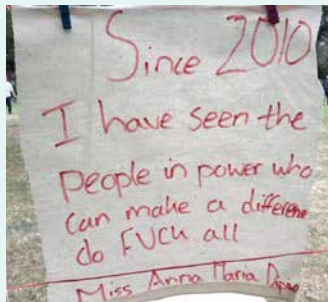 Since 2010
I have seen the
people in power who
can make a difference
do FUCK all
Miss Anna Maria